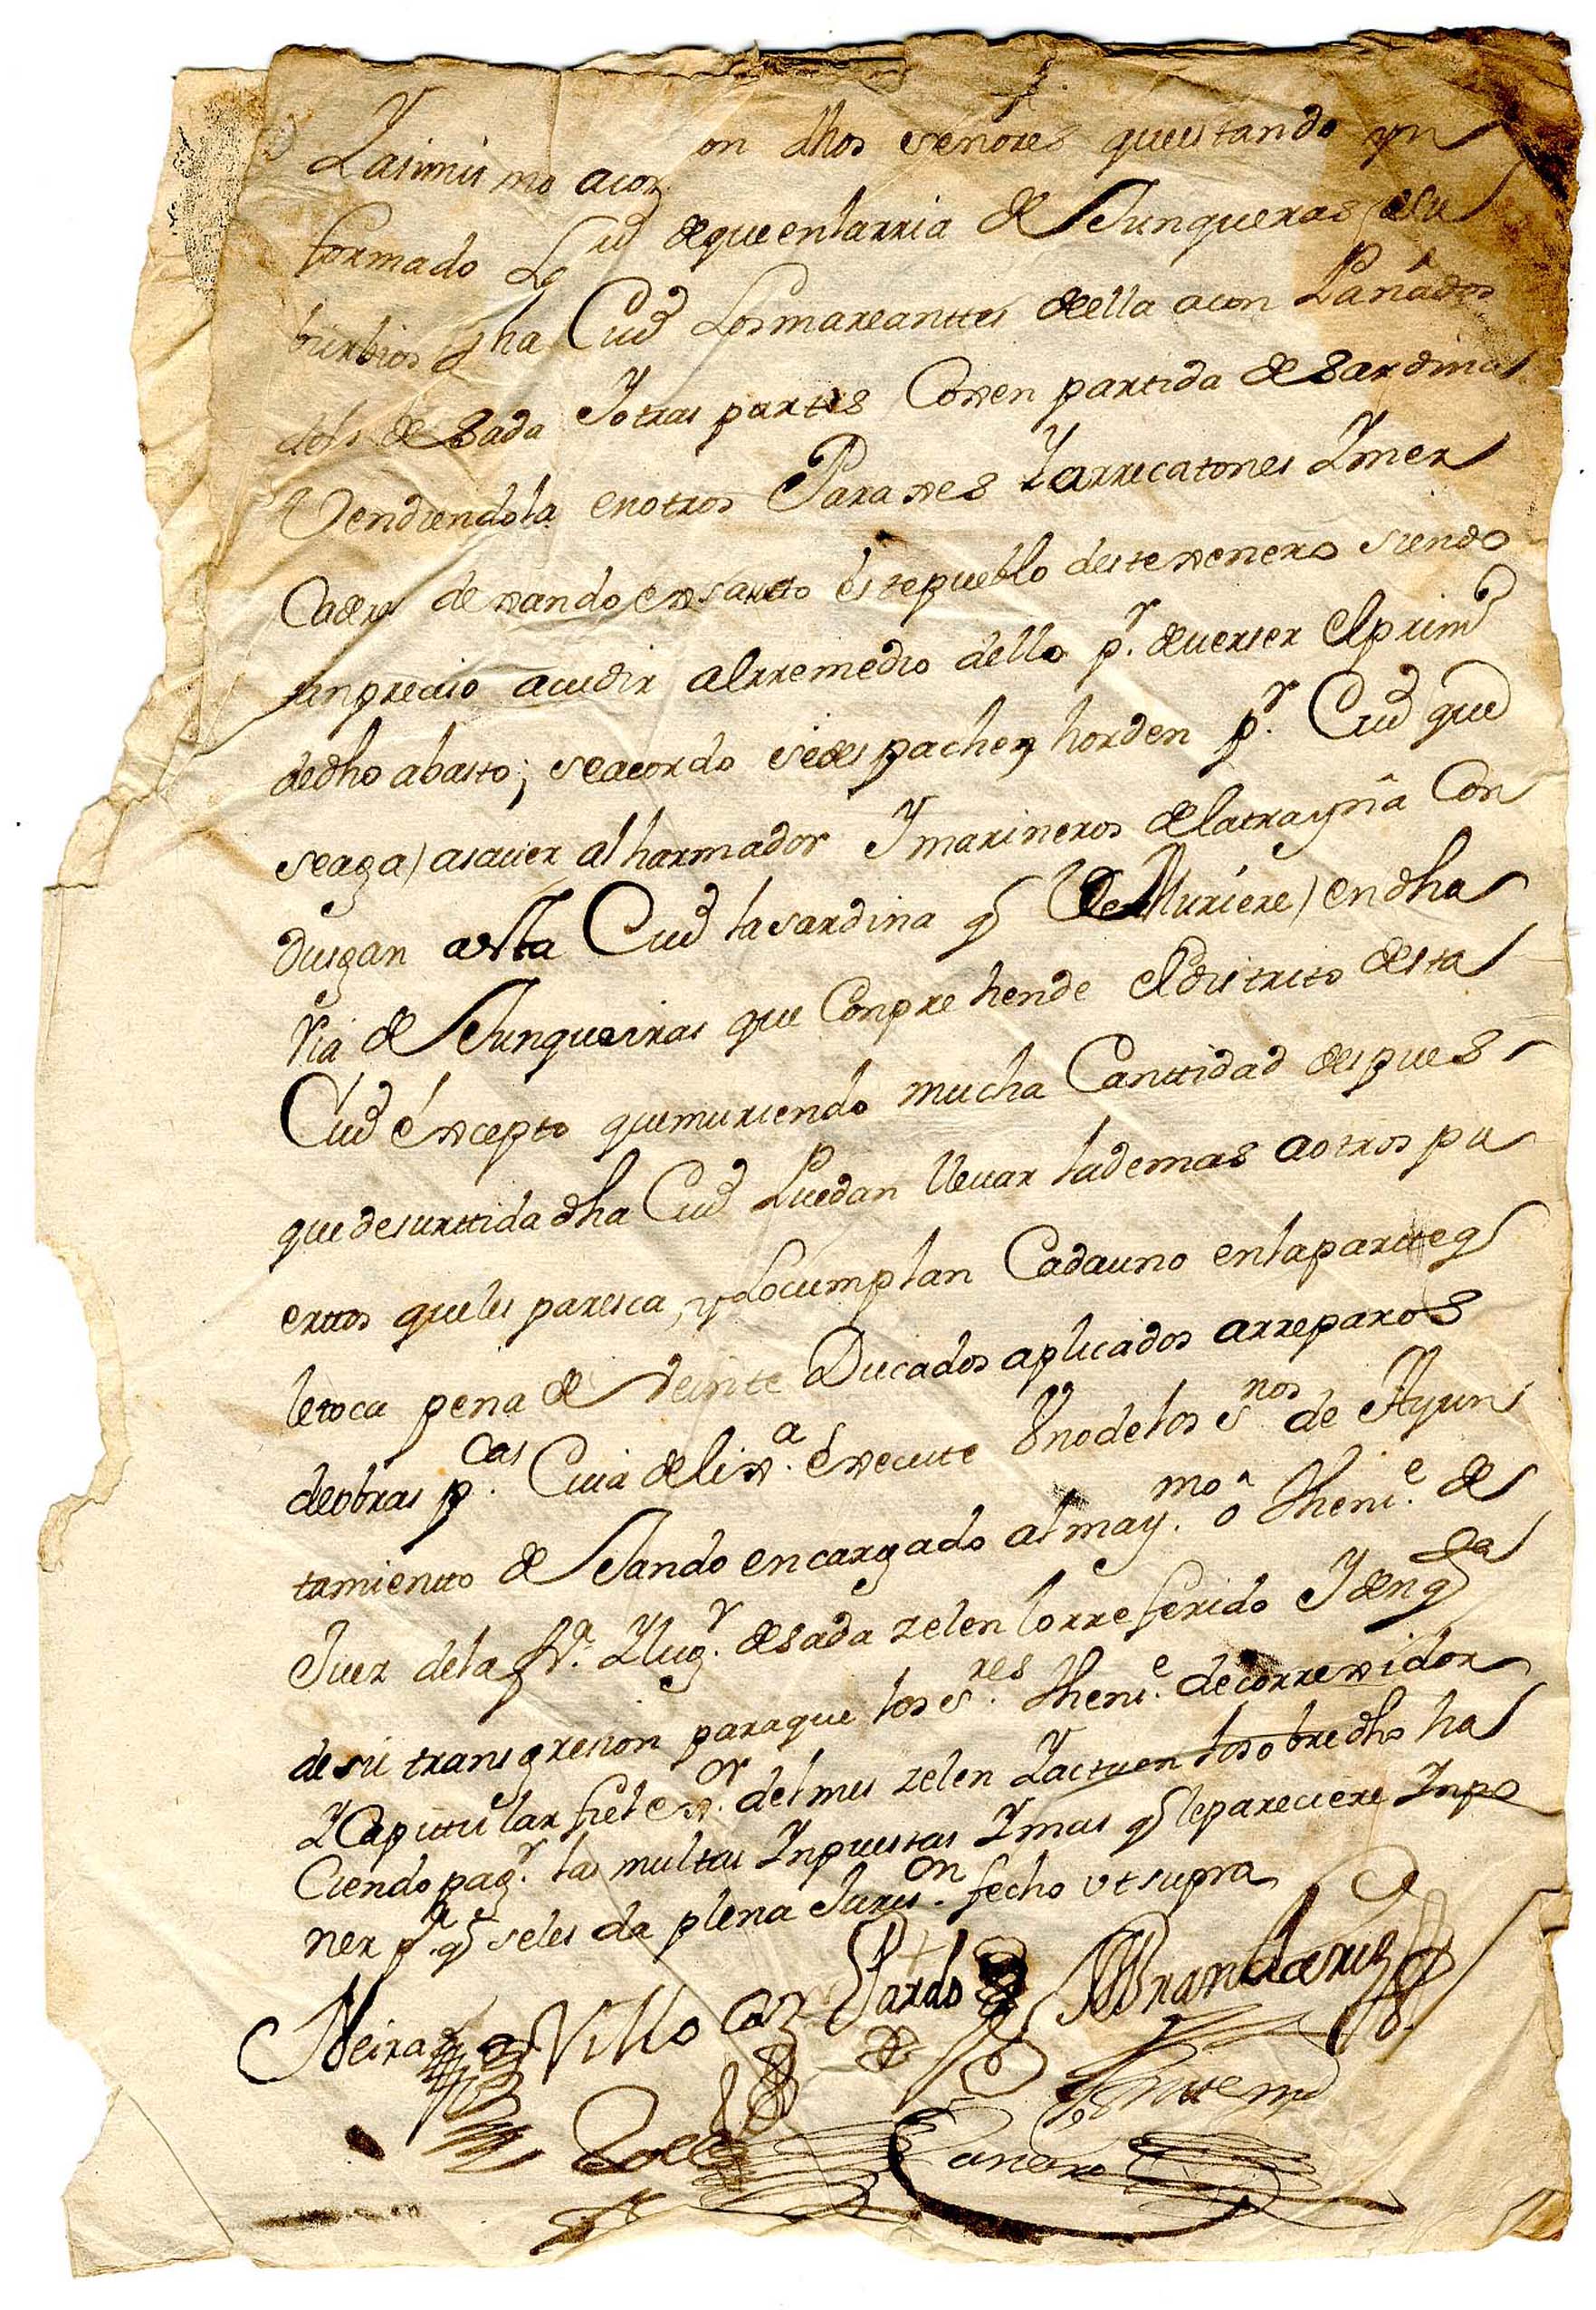 Yasimismo acor on dhos señores queestando yn
formado La Ciud dequeenlarria de Junqueras, desu
burbios dha Ciud Losmareanttes deella acon
de Sada Yotras partes Coxen partida de Sardinas
Vendiendola enotros Paraxes Yarrecatones Ymer
Caderes dexando exsausto estepueblo destexenero siendo
ynpreciso acudir alrremedio dello pr. deuerser elprimo
dedho abasto; seacordo sedespachen horden pr. Ciud que
seaga) asauer al harmador Ymarineros delatrayña Con
dusgan aesta Ciud lasardina q Se Muriere) endha
Ria de Junqueiras que Conprehende eldistrito desta
Ciud éxcepto quemuriendo mucha Canttidad despues
quedesurttida dha Ciud Puedan lleuar lademas aotros pu
erttos queles paresca, y Locumplan Cadauno enlapartteq
letoca pena de Veinte Ducados aplicados arreparos
deobras pcas. Cuia delixa. éxecute Unodelos Snos de Ayun
tamientto dexando encargado almaymo. o Thene. de
Juez dela fxa. Ylugr. desada zelen lorreferido Ydenqta
desu transgresion paraque los Sres. Thene. decorrexidor
YCapittular fiel exor. delmes zelen Yactuen losobredho ha
Ciendo pagr. las multas Ynpuestas Ymas q lepareciere Ynpo
ner pa. q seles da plena Jurison. fecho vt supra
Neira Villo Pardo Brandariz